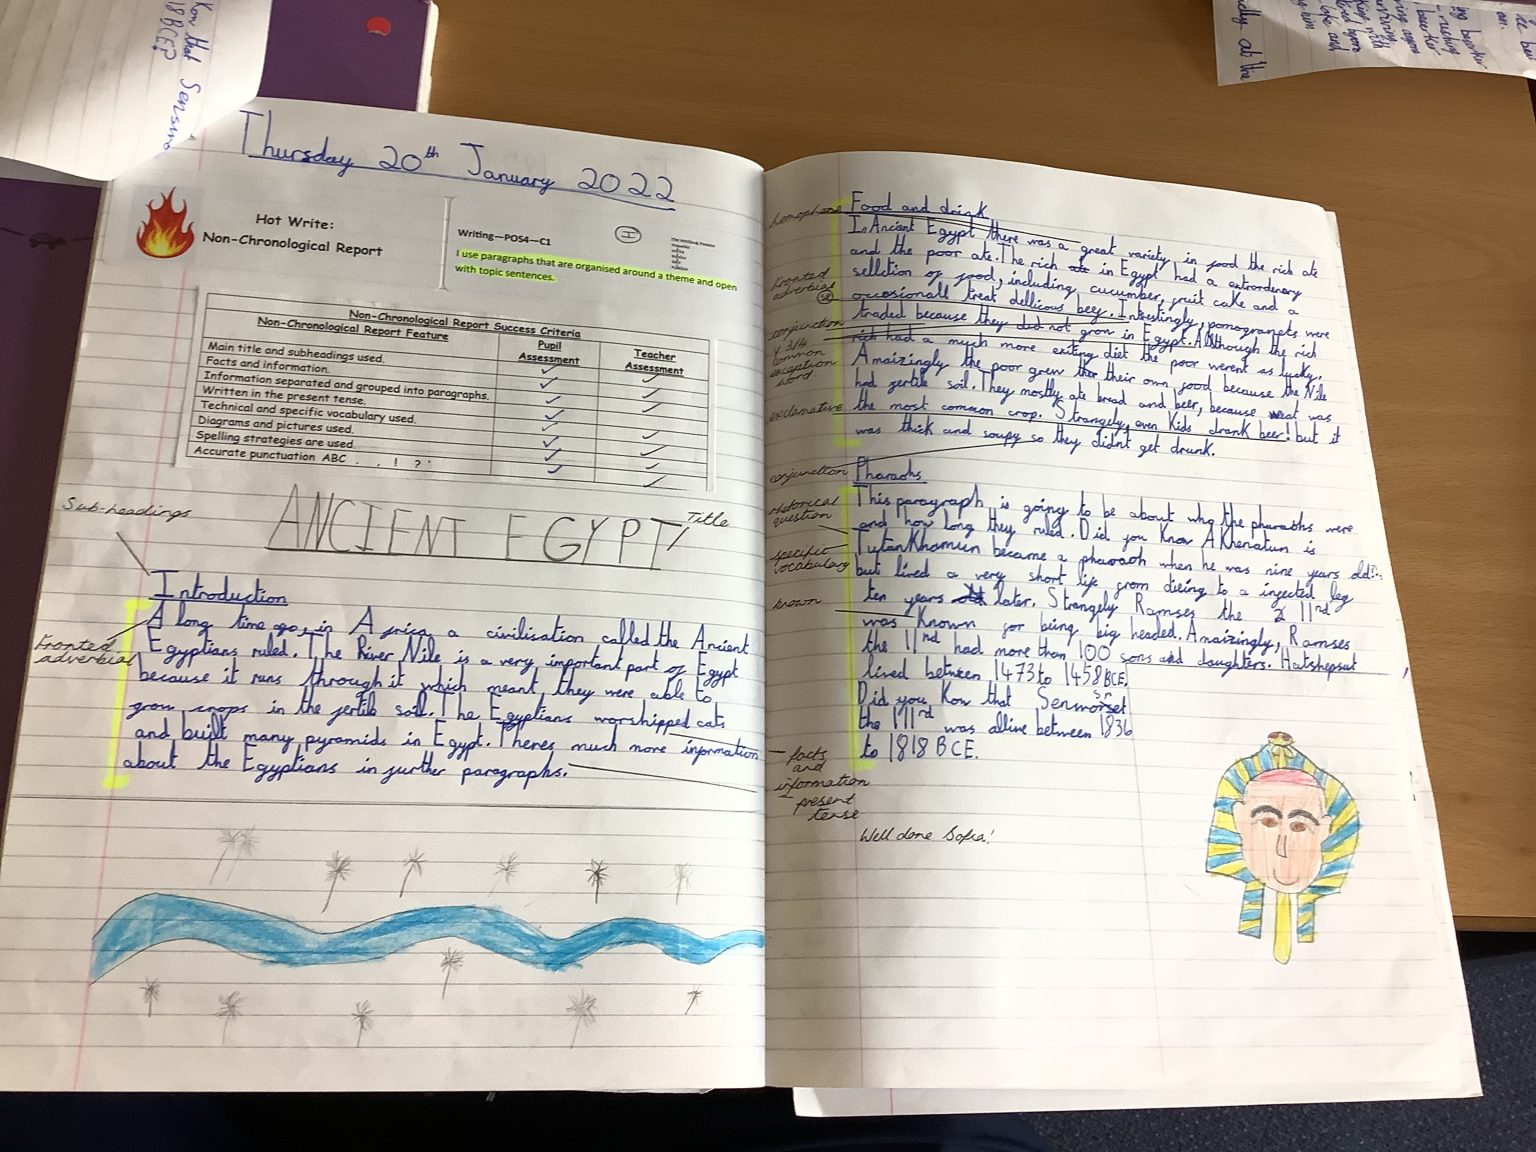 Thursday 20th January 2022
Hot Write:
Non-Chronological Report
Writing—POS4—C1
I
I use paragraphs that are organised around a theme and open
with topic sentences.
Non-Chronological Report Success Criteria
Non-Chronological Report Feature
Pupil Assessment
Teacher Assessment
Main title and subheadings used.
Facts and information.
Information separated and grouped into paragraphs.
Written in the present tense.
Technical and specific vocabulary used.
Diagrams and pictures used.
Spelling strategies are used.
Accurate punctuation ABC . , ! ? '
Sub-headings
ANCIENT EGYPT!
Title
Introduction
Fronted adverbial
A long time ago, in Africa a civilisation called the Ancient
Egyptians ruled. The River Nile is a very important part of Egypt
because it runs through it which meant they were able to
grow crops in the fertile soil. The Egyptians worshipped cats
and built many pyramids in Egypt. Theres much more information
about the Egyptians in further paragraphs.
homophone
Food and drink
In Ancient Egypt there was a great variety in food the rich ate
and the poor ate. The rich in Egypt had a extrordenary
Fronted adverbial
selletion of food, including cucumber, fruit cake and a
occosionall treat dellicous beef. Intrestingly, pomogranets were
conjunction
traded because they did not grow in Egypt. Although the rich
Y 3/4 common exception word
rich had a much more exiting diet the poor werent as lucky.
Amaizingly the poor grew their own food because the Nile
had fertile soil. They mostly ate bread and beer, because weat was
exclamative
the most common crop. Strangely, even Kids drank beer! but it
was thick and soupy so they didn't get drunk.
conjunction
Pharaohs
rhetorical question
This paragraph is going to be about who the pharaohs were
and how long they ruled. Did you Know AKhenatun is
specific vocabulary
TutanKhamun became a pharaoh when he was nine years old
but lived a very short life from dieing to a injected leg
known
ten years later. Strangely Ramses the 11nd
was Known for being big headed. Amaizingly, Ramses
the 11nd had more than 100 sons and daughters. Hatshepsut
lived between 1473 to 1458 BCE.
Did you Kow that Senworset
the 111rd was allive between 1836
to 1818 BCE.
facts and information
present tense
Well done Sofia!